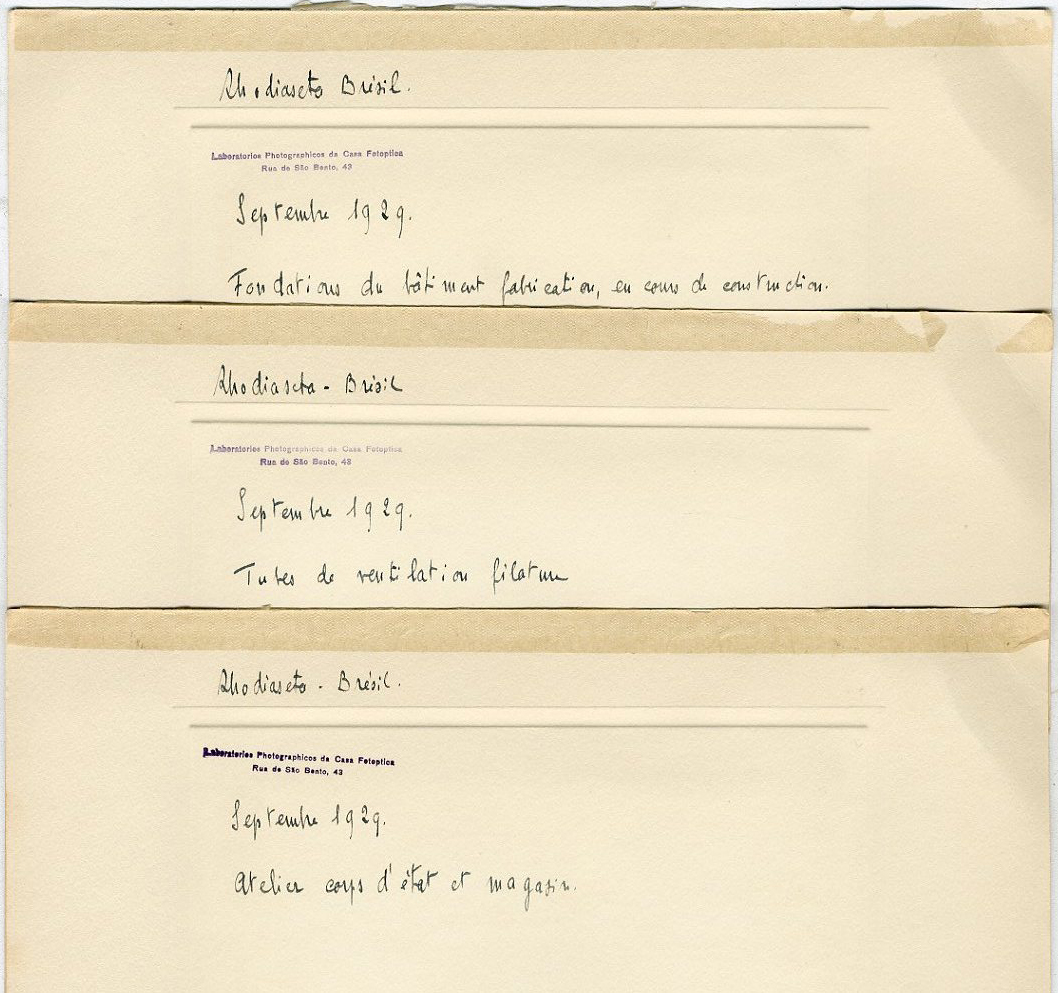 Rhodiaseta Brésil.
Laboratorios Photographicos da Casa Fotoptica
Rua de São Bento, 43
Septembre 1929.
Fondations du bâtiment fabrication, en cours de construction.
Rhodiaseta - Brésil
Laboratorios Photographicos da Casa Fotoptica
Rua de São Bento, 43
Septembre 1929.
Tubes de ventilation filature
Rhodiaseta - Brésil.
Laboratorios Photographicos da Casa Fotoptica
Rua de São Bento, 43
Septembre 1929.
Atelier corps d'état et magasin.